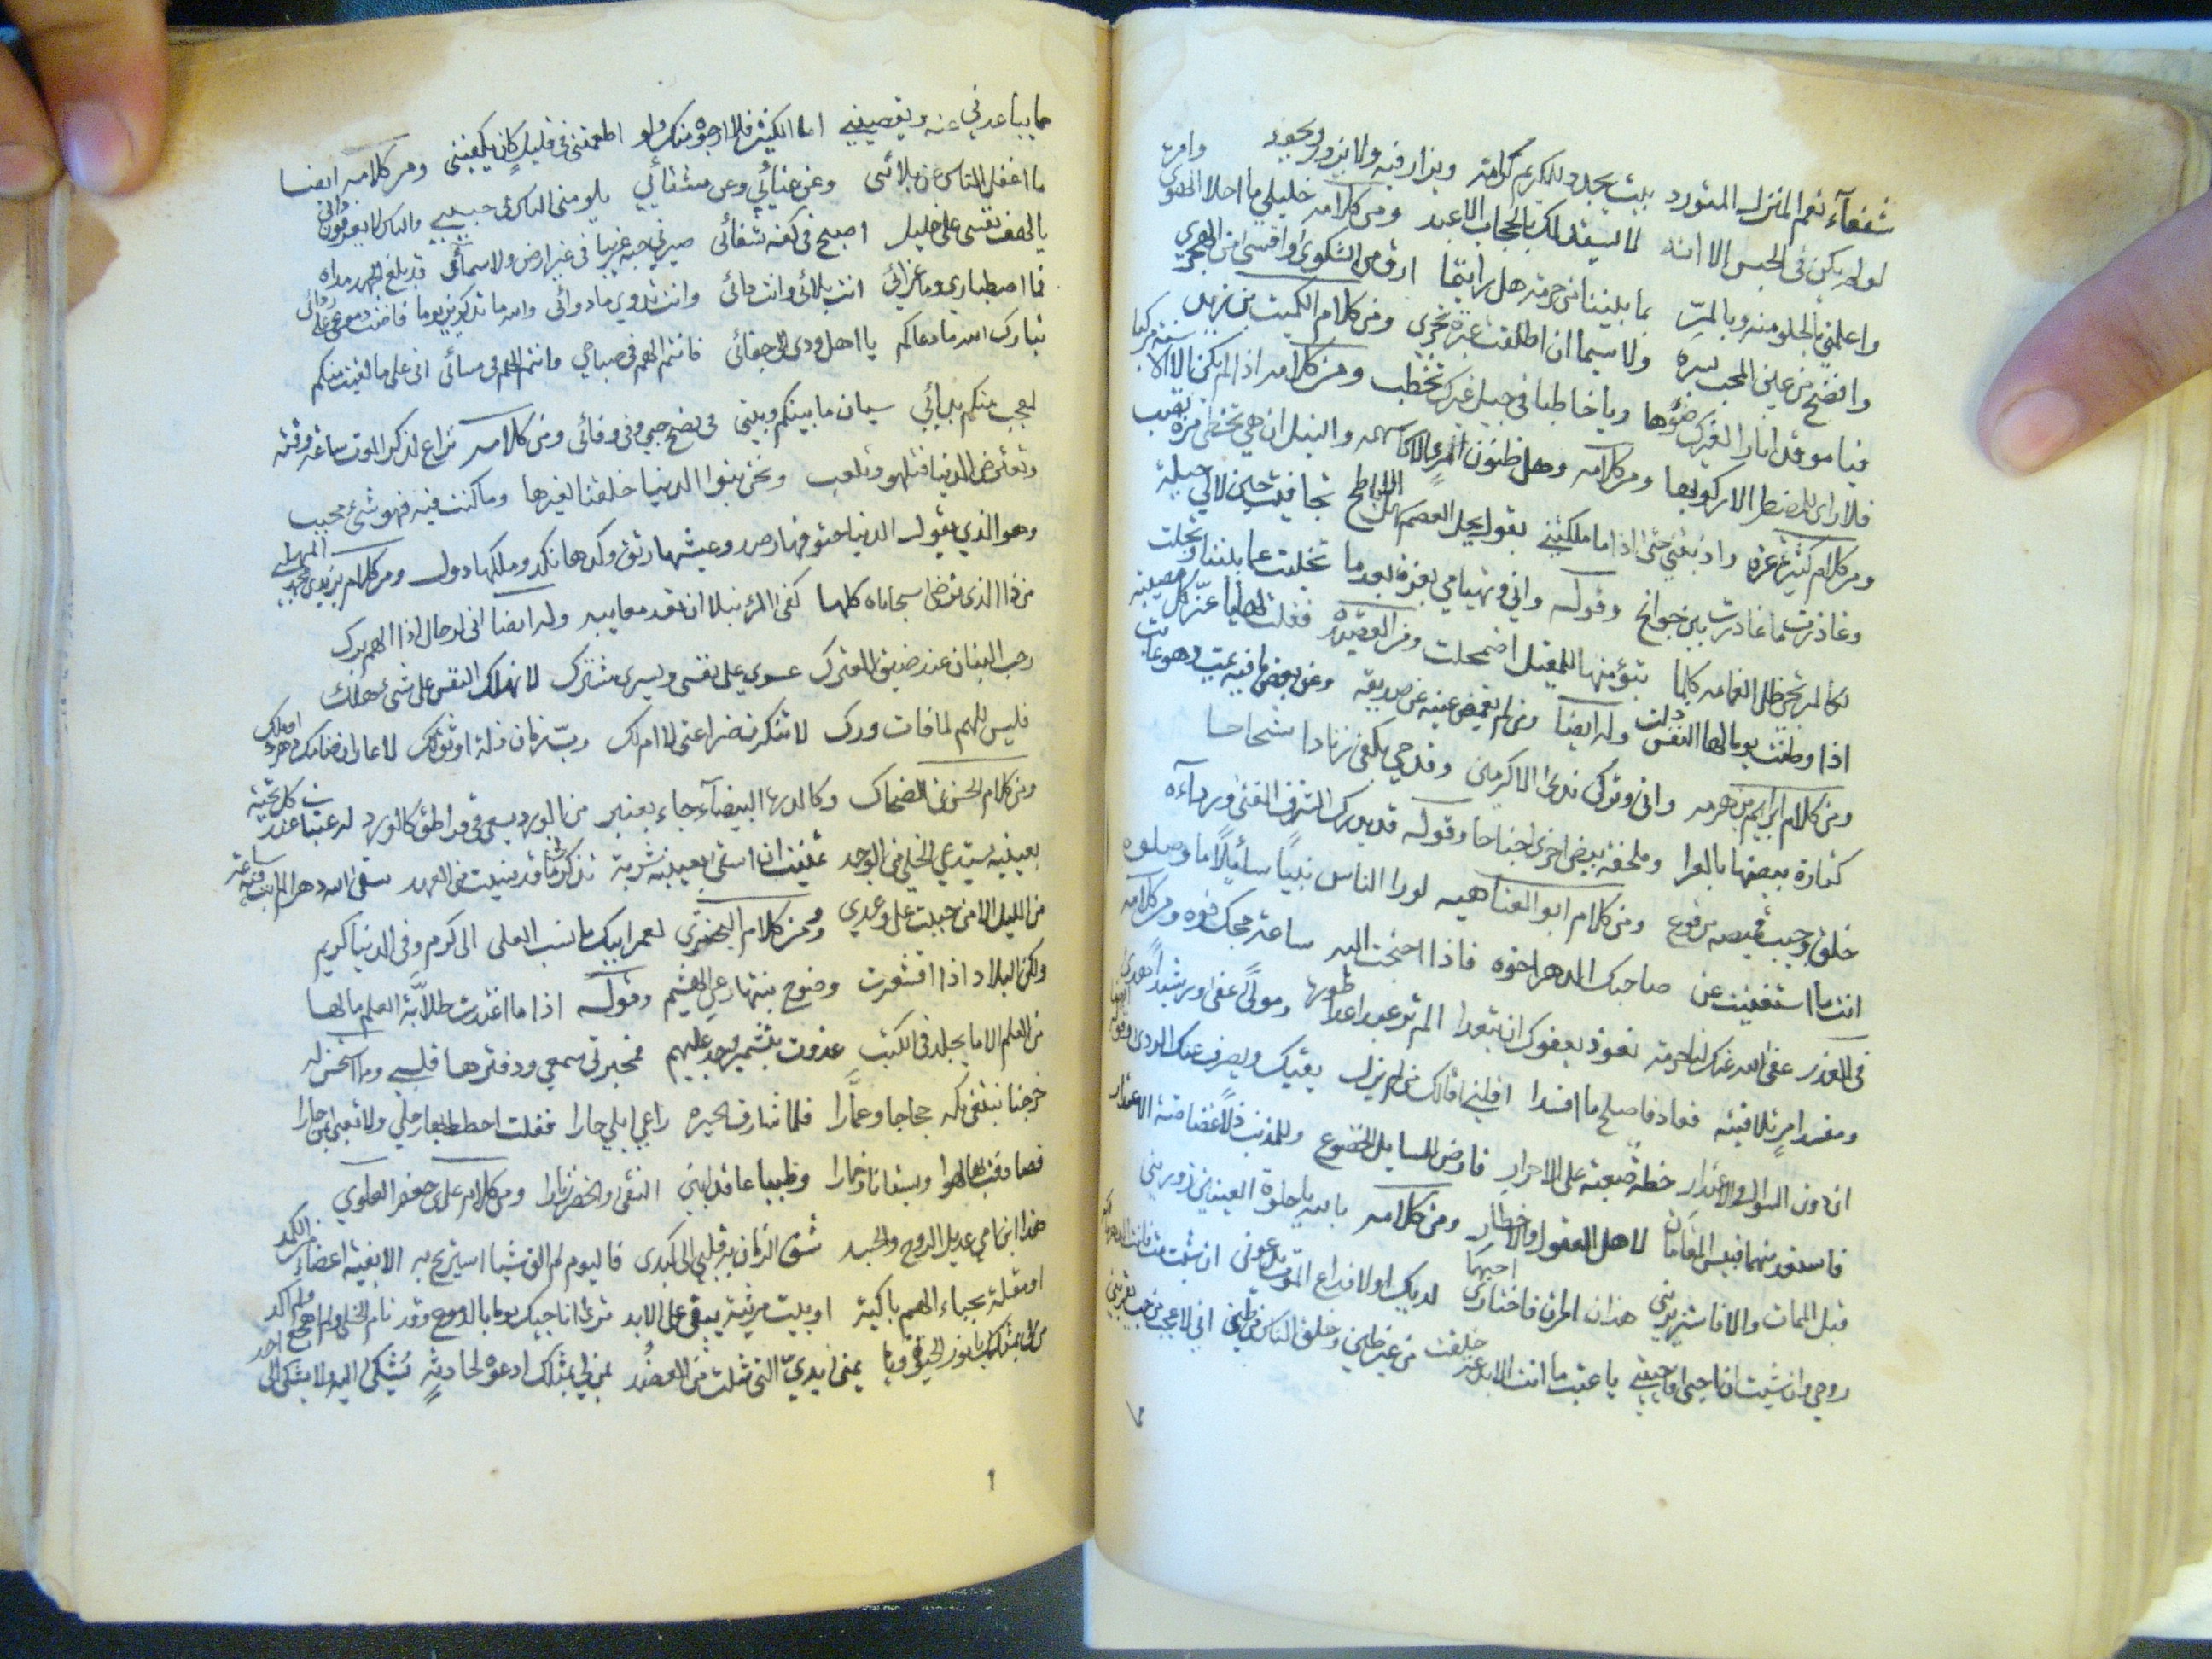 شفعآء نعم المنزل المتورد بيت يجدد للكريم كرامة ويزار فيه ولا يزور ويحفد
لو لم يكن في الحبس الا انه لا يستذلك بالحجاب الاعبد ومن كلامه خليلي ما احلا الهوى وامره
واعلمني بالحلو منه وبالمر بما بيننا من حرمة هل رايتما ارق من الشكوى واقسى من الهجر
وافضح من عين المحب لسره ولا سيما ان اطلقت عبرة تجري ومن كلام الكميت بن زيد
فيا موقدا نارا لغيرك ضوؤها ويا خاطبا في حبل غيرك تخطب ومن كلامه اذا لم يكن الا الاسنة مركبا
فلا راى للمضطر الا ركوبها ومن كلامه وهل ظنون امرء الا كاسهمه والنبل ان هي تخطى مرة تصب
ومن كلام كثير عزه وادنيتني حتى اذا ما ملكتني بقول يحل العصم سهل الاباطح تجافيت حين لا لي حيلة
وغادرت ما غادرت بين جوانح وقوله واني وتهيامي بعزة بعد ما تخليت عما بيننا وتخلت
لكالمرتجي ظل الغمامه كلما تبوء منها للمقيل اضمحلت ومن القصيده فقلت لها يا عز كل مصيبة
اذا وطنت يوما لها النفس ذلت وله ايضا ومن لم يغمض عينه عن صديقه وعن بعض ما فيه يمت وهو عاتب
ومن كلام ابراهيم بن هرمه واني وتركى ندى الاكرمين وقدحي بكفي زنادا شحاحا
كتاركة بيضها بالعرا وملحفة بيض اخرى جناحا وقوله قد يدرك الشرف الفتى وردآءه
خلق وجيب قميصه مرقوع ومن كلام ابو العتاهيه لو را الناس نبيا سائلا ما وصلوه
انت ما استغنيت عن صاحبك الدهر اخوه فاذا احتجت اليه ساعة مجك فوه ومن كلامه
في العذر عفى الله عنك لنا حرمة نعوذ بعفوك ان تبعدا الم تر عبدا عدا طوره ومولى عفى ورشيدا هدى
ومفسد امر تلافيته فعاد فاصلح ما افسدا اقلني اقالك من لم يزل يقيك ويصرف عنك الردى وقوله ايضا
ان دون السؤال والاعتذار خطة صعبة على الاحرار فارض للسايل الخضوع وللمذنب ذلا غضاضة الاعتذار
لاهل العقول والاخطار ومن كلامه بالله يا حلوة العينين زوريني
قبل الممات والا فاستزيريني هذان امران فاختارى احبهما لديك اولا فداع الموت يدعوني ان شئت
روحي وان شئت ان احيى فاحييني يا عتب ما انت الا بدعة خلقت من غير طين وخلق الناس من طين اني لاعجب من حب يقربني
مما يباعدني عنه ويقصيني اما الكثير فلا ارجوه منك ولو اطمعتني في قليل كان يكفيني ومن كلامه ايضا
ما اغفل الناس عن بلائي وعن عنائي وعن شقائي يلومني الناس في حبيبي والناس لا يعرفون دائي
يا لهف نفسي على خليل اصبح في كفه شفائي صيرني حبه غريبا في غير ارض ولا سمائي قد بلغ الجهد مداه
فما اصطباري وما عزائي انت بلائي وانت دائي وانت تدري ما دوائي والله ما تذكرين يوما فاضت دموعي على ردائي
تبارك الله ما دعاكم يا اهل ودي الى جفائي فانتم الهم في صباحي وانتم الهم في مسائي اني على ما لقيت منكم
لمعجب منكم بدائي سيان ما بينكم وبيني في نصح حبي وفي وفائي ومن كلامه نراع لذكر الموت ساعة وقته
وتعترض الدنيا فنلهو ونلعب ونحن بنوا الدنيا خلقنا لغيرها وما كنت فيه فهو شئ محبب
وهو الذي يقول الدنيا حتوفها رصد وعيشها رنق وكدها نكد وملكها دول ومن كلام يزيد بن محمد المهلبي
من ذا الذي ترضى سجاياه كلها كفى المرء نبلا ان تعد معايبه وله ايضا اني لرحال اذا الهم برك
رحب اللبان عند ضيق المعترك عسري على نفسي ويسرى مشترك لا تهلك النفس على شئ هلك
فليس للهم لما فات درك لا تنكرن ضراعتي لا ام لك رب زمان ذله اوثق لك لا عار ان ضامك دهر او ملك
ومن كلام الحسن بن الضحاك وكالدرة البيضآء جاء بعنبر من الورد يسعى في قراطق كالورد له عبثات عند كل تحية
بعينيه تستدعي الخلي الى الوجد تمنيت ان اسقى بعينيه شربة تذكرني ما قد نسيت من العهد سقى الله دهرا لم ابت فيه ساعة
من الليل الا من حبيب على وعدي ومن كلام البحتري لعمر ابيك ما نسب المعلى الى كرم وفي الدنيا كريم
ولكن البلاد اذا اقشعرت وصوح نبتها رعي الهشيم وقوله اذا ما اغتدت طلابة العلم ما لها
من العلم الا ما يخلد في الكتب غدوت بتشمير وجد عليهم فمحبرتي سمعي ودفترها قلبي وما احسن له
خرجنا نبتغي مكه حجاجا وعمارا فلما شارف الحيرة راعي ابلي حارا فقلت احطط بها رحلي ولا تعبا بمن حارا
فصادفنا بها لهوا وبستانا وخمارا وظبيا عاقدا بين النقى والخصر زنارا ومن كلام علي بن جعفر العلوي
هذا ابن امي عديل الروح والجسد شق الزمان به قلبي الى كبدى فاليوم لم الق شيا استريح به الا تفتت اعضاء من الكمد
او مقلة بحياء الهم باكية او بيت مرثية يبقى على الابد ترى اناجيك يوما بالدموع وقد نام الخلي ولم اهجع ولم اكد
من لي بمثلك يا نور الحيوة ويا يمنى يدي التي شلت من العضد من لي بمثلك ادعوه لحادثة يشكى اليه ولا يشكى الى احد